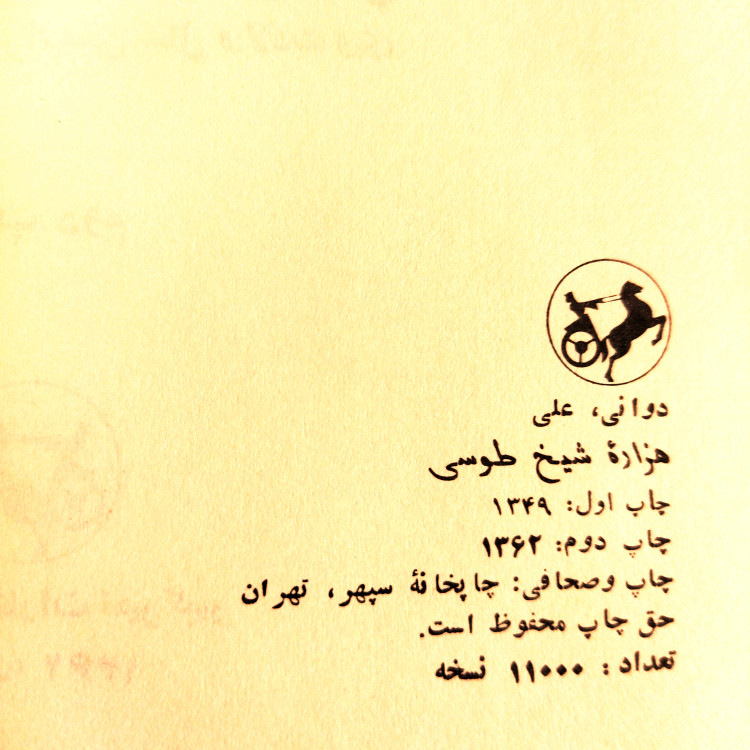 دوانی، علی
هزارهٔ شیخ طوسی
چاپ اول: ۱۳۴۹
چاپ دوم: ۱۳۶۲
چاپ وصحافی: چاپخانهٔ سپهر، تهران
حق چاپ محفوظ است.
تعداد: ۱۱۰۰۰ نسخه